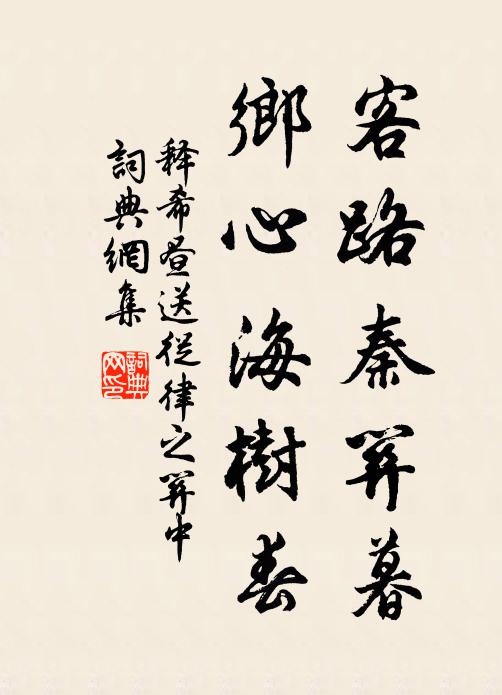 客路秦關暮
鄉心海樹春
释希晝送從律之關中
詞典網集
詞典网印